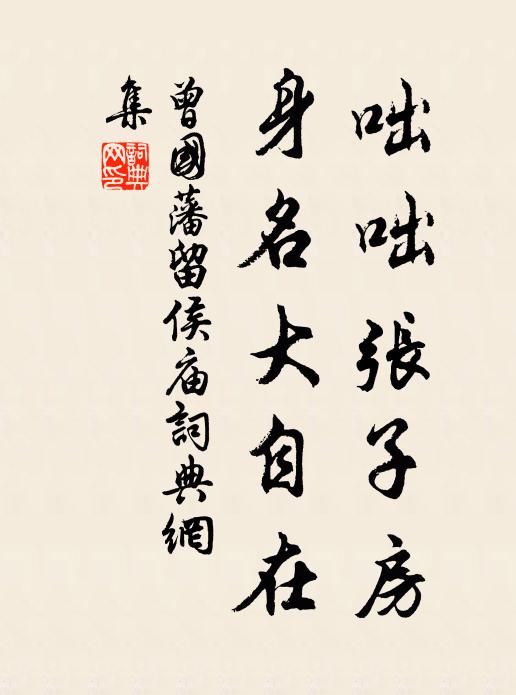 咄咄張子房
身名大自在
曾國藩留侯庙詞典網
集
詞典網印